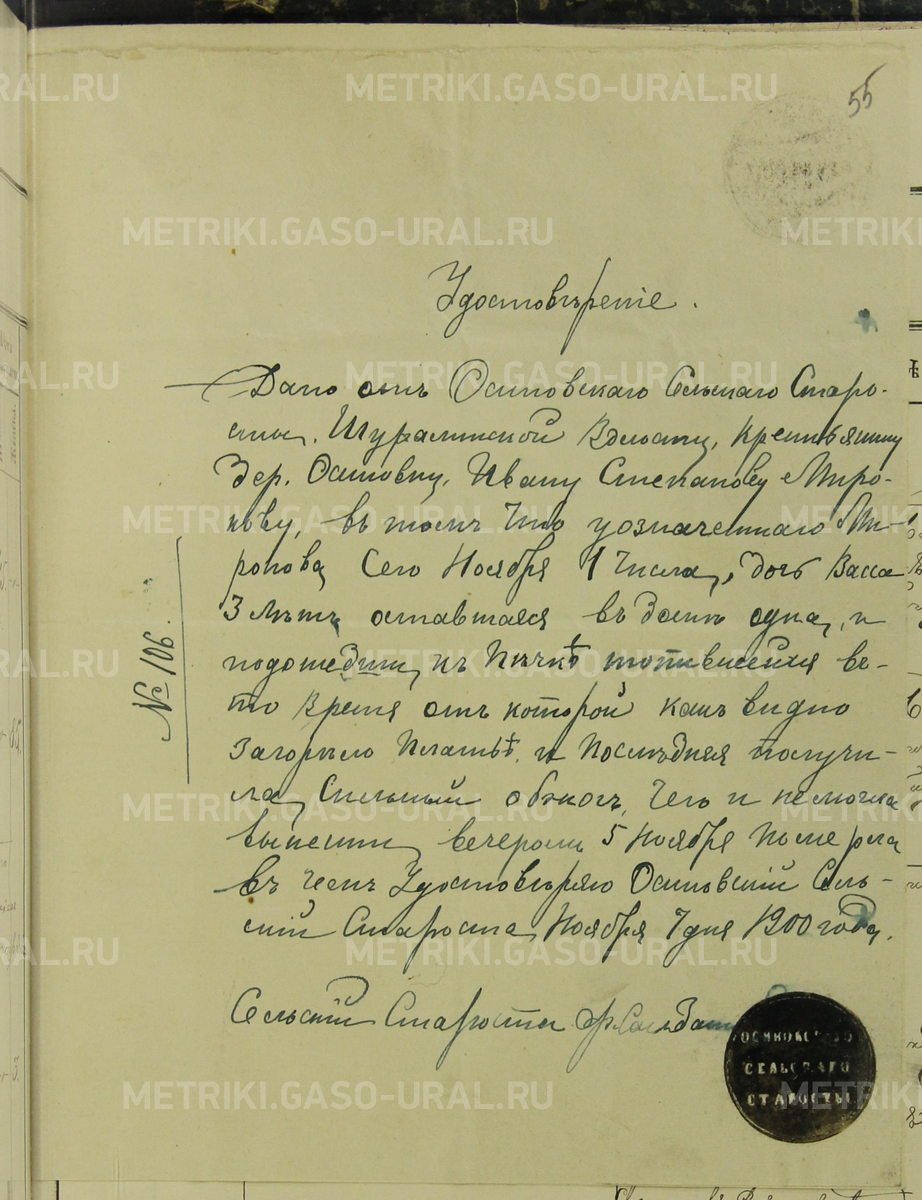 55
Удостовѣреніе.
Дано отъ Осиновскаго Сельскаго Старо-
сты, Шуралинской Волости, крестьянину
дер. Осиновки, Ивану Степанову Миро-
нову, въ томъ что уозначеннаго Ми-
ронова Сего Ноября 1 числа, дочь Васса
3 лѣтъ оставшаяся въ домѣ одна, и
подошедши къ Печкѣ топившейся ве-
то время отъ которой какъ видно
Загорѣло платьѣ и последняя получи-
ла, Сильный обжогъ, чего и не могла
вынести, вечеромъ 5 Ноября Померла
въ чемъ Удостовѣряю Осиновскій Сель-
скій Староста, Ноября 7 дня 1900 года.
Сельскій Староста
№ 106.
ОСИНОВСКАГО
СЕЛЬСКАГО
СТАРОСТЫ
METRIKI.GASO-URAL.RU